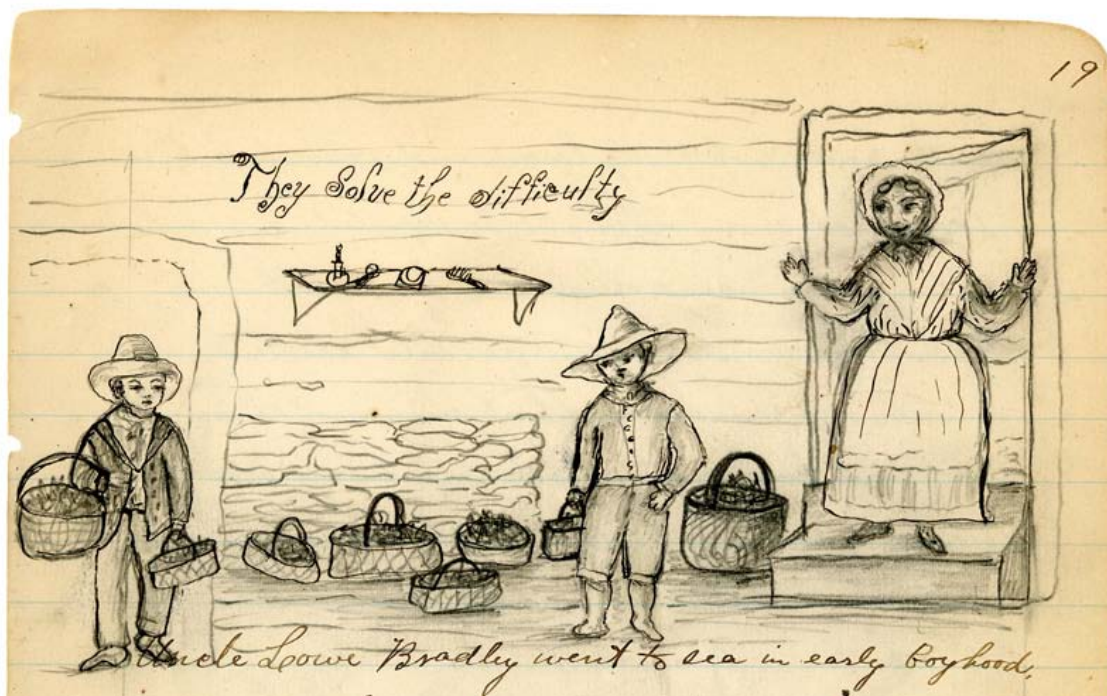 19
They Solve the difficulty
Uncle Lowe Bradley went to sea in early boyhood,